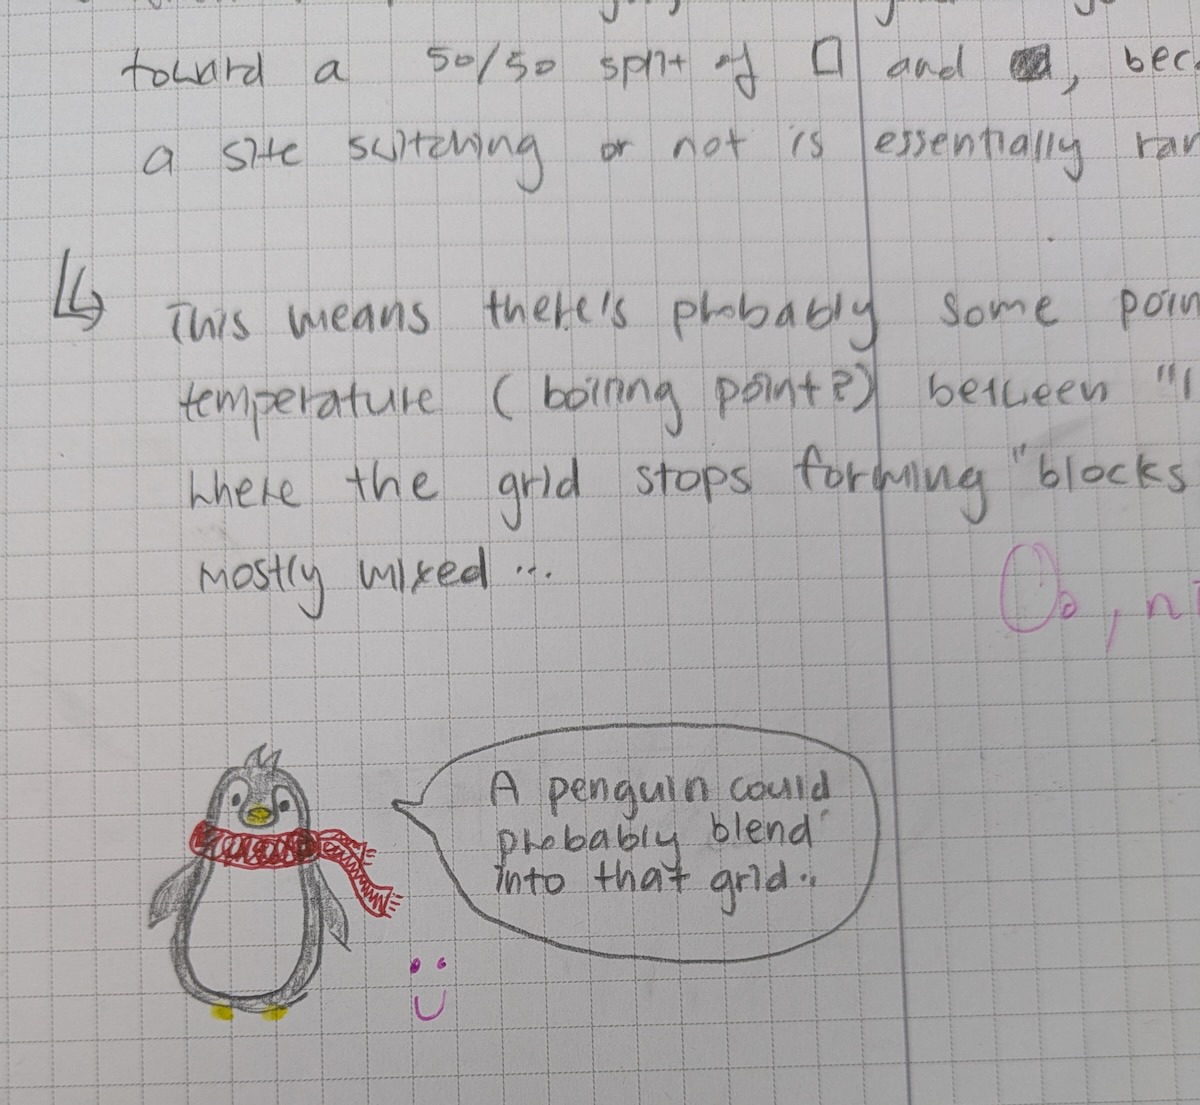 toward a 50/50 split of □ and ■, bec
a site switching or not is essentially ran
This means there's probably some poin
temperature (boiling point?) between "l
where the grid stops forming "blocks
mostly mixed ...
Oo, ni
A penguin could
probably blend
into that grid..